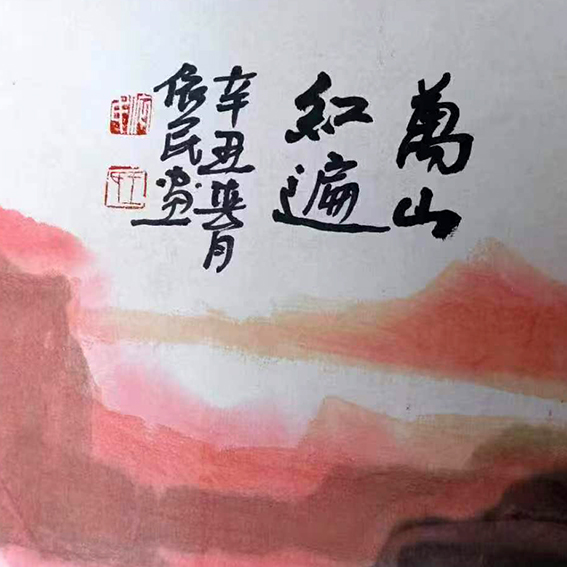 萬山
紅遍
辛丑英月
依民畫